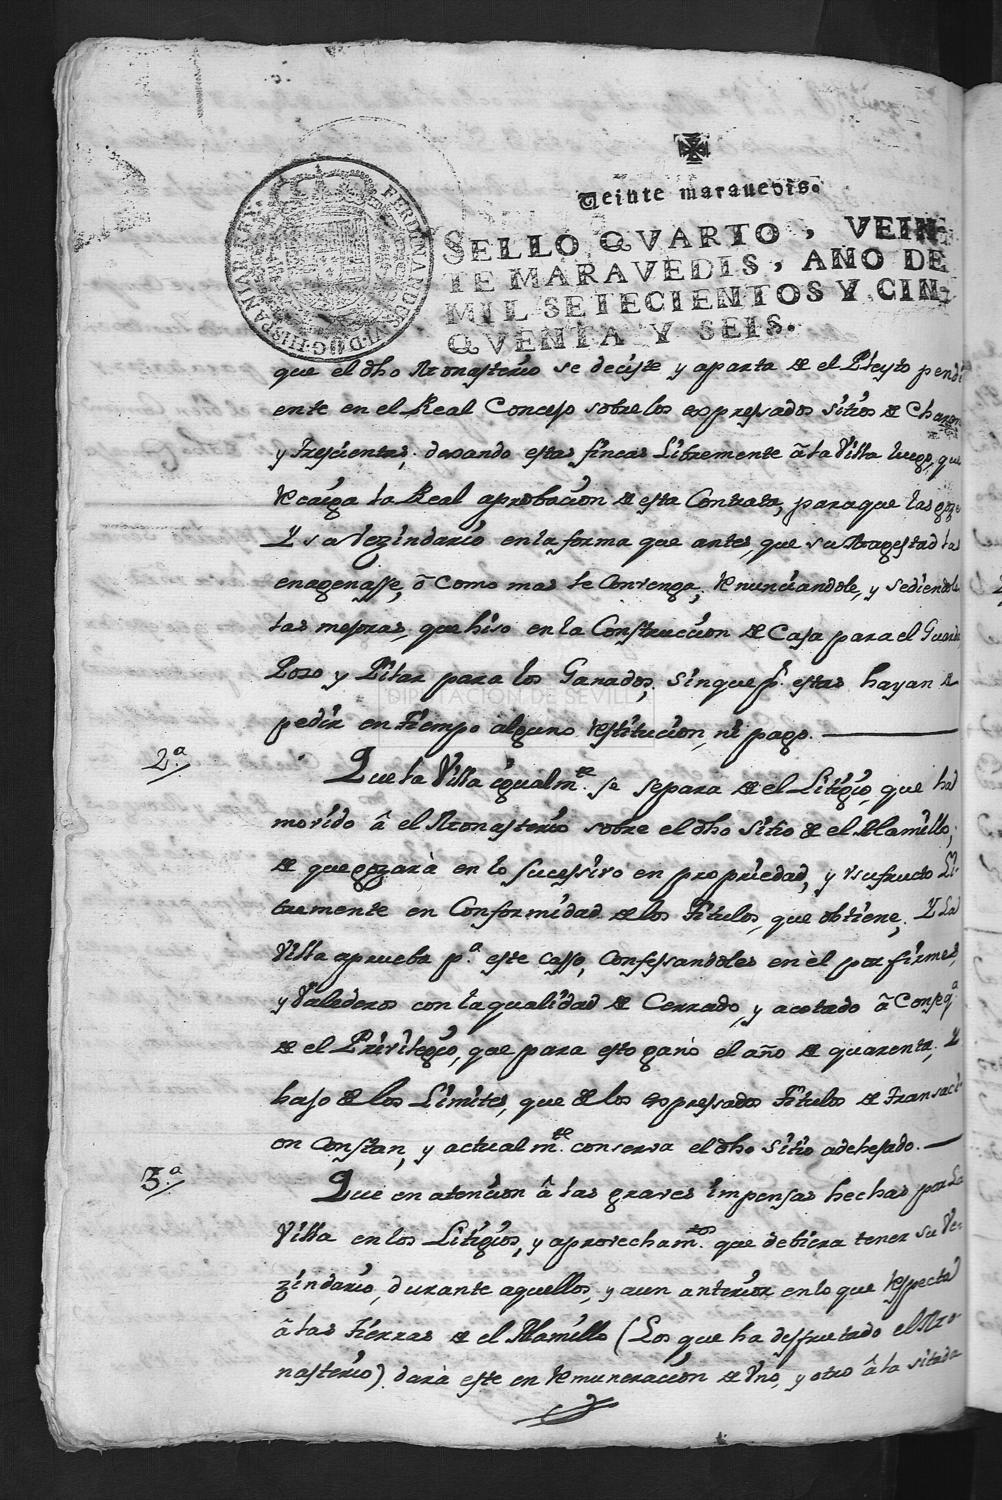 Veinte marauedis.
SELLO QVARTO, VEIN-
TE MARAVEDIS, AÑO DE
MIL SETECIENTOS Y CIN-
QVENTA Y SEIS.
FERDINANDUS VI D G HISPANIAR REX
que el dho Monasterio se deciste y aparta de el Pleyto pendi
ente en el Real Concejo sobre los expressados sitios de
y Trescientas, dexando estas fincas Libremente â la Villa luego, que
recaiga la Real aprobacion de esta Contrata, para que las goze
Y su Vezindario en la forma que antes, que su Magestad las
enagenasse, ô como mas le Convenga, renunciandole, y sediendole
las mejoras, que hiso en la Construccion de Casa para el Guarda,
Pozo y Pilar para los Ganados, sin que pr. estas hayan de
pedir en tiempo alguno restitucion, ni pago.
2.ª Que la Villa igualmte. se separa de el Litigio, que ha
movido â el Monasterio sobre el dho sitio de el Alamillo,
de que gozarà en lo sucessivo en propriedad, y usufructo Li-
bremente en Conformidad de los Titulos, que obtiene, Y La
Villa aprueba pª este casso, Confessandoles en èl por firmes,
y Valederos con la qualidad de Cerrado, y acotado â Conseqª
de el Privilegio, que para esto ganò el año de quarenta, Y
bajo de los Limites, que de los expressados Titulos de Transaci-
on Constan, y actualmte. conserva el dho sitio adehesado.
3.ª Que en atencion â las graves impensas hechas por La
Villa en los Litigios, y aprovechamtos. que debiera tener su Ve-
zindario, durante aquellos, y aun anterior en lo que respecta
â las tierras de el Alamillo (Los que ha desfrutado el Mo-
nasterio) darà este en remuneracion de Uno, y otro â la sitada
DIPUTACIÓN DE SEVILLA